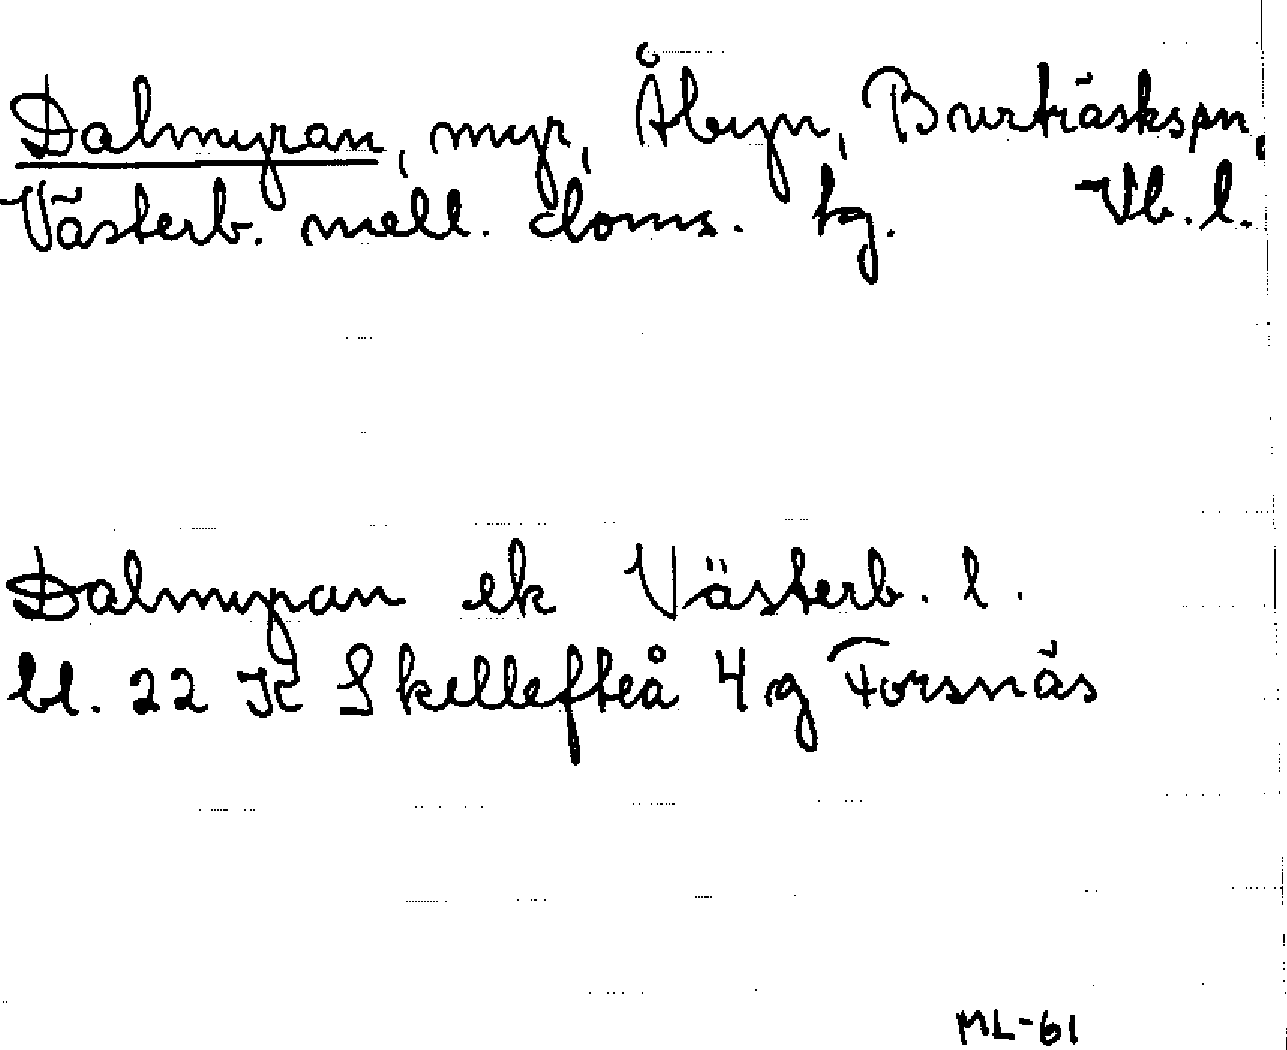 Dalmyran, myr, Åbyn, Burträsks sn,
Västerb. mell. doms. tg. Vb. l.
Dalmyran ek Västerb. l.
bl. 22 K Skellefteå 4 g Forsnäs
ML-61